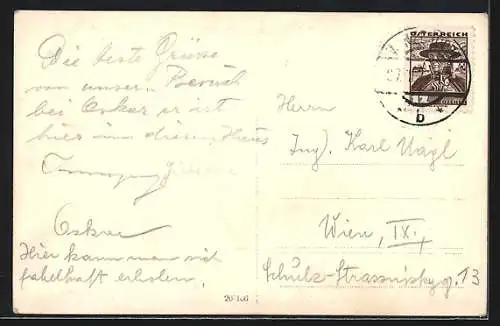 Die beste Grüsse
von unseren Besuch
bei Oskar er ist
hier in diesen Haus
Oskar
Hier kann man sich
fabelhaft erholen.
20 166
ÖSTERREICH
b
Herrn
Ing. Karl Nagl
Wien, IX.,
Schulz-Strassnitzky g. 13